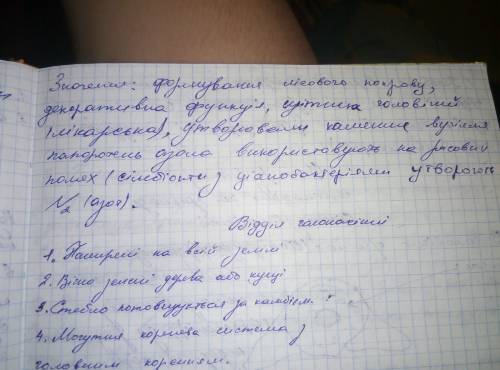 Значення: формування лісового покрову,
декоративна функція, щитник головічий
(лікарська), утворювали каменне вугілля
папороть азола використовують на рисових
полях (сімбіоnти з ціанобактеріями утворюють
N2 (азот).
Відділ голонасінні
1. Поширені на всій землі
2. Вічно зелені дерева або кущі
3. Стебло потовщується за камбієм.
4. Могутня коренева система з
головним коренням.